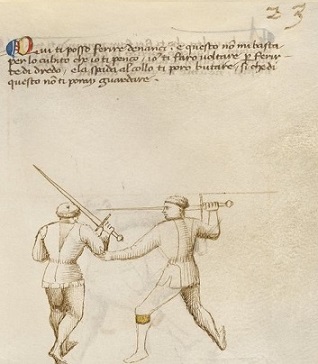 23
Qui ti posso ferire denanci, e questo nō mi basta
per lo cubito che io ti penço, io ti farò voltare p ferir
te di dredo, e la spada al collo ti porò butare, sì che di
questo nō ti poray guardare.